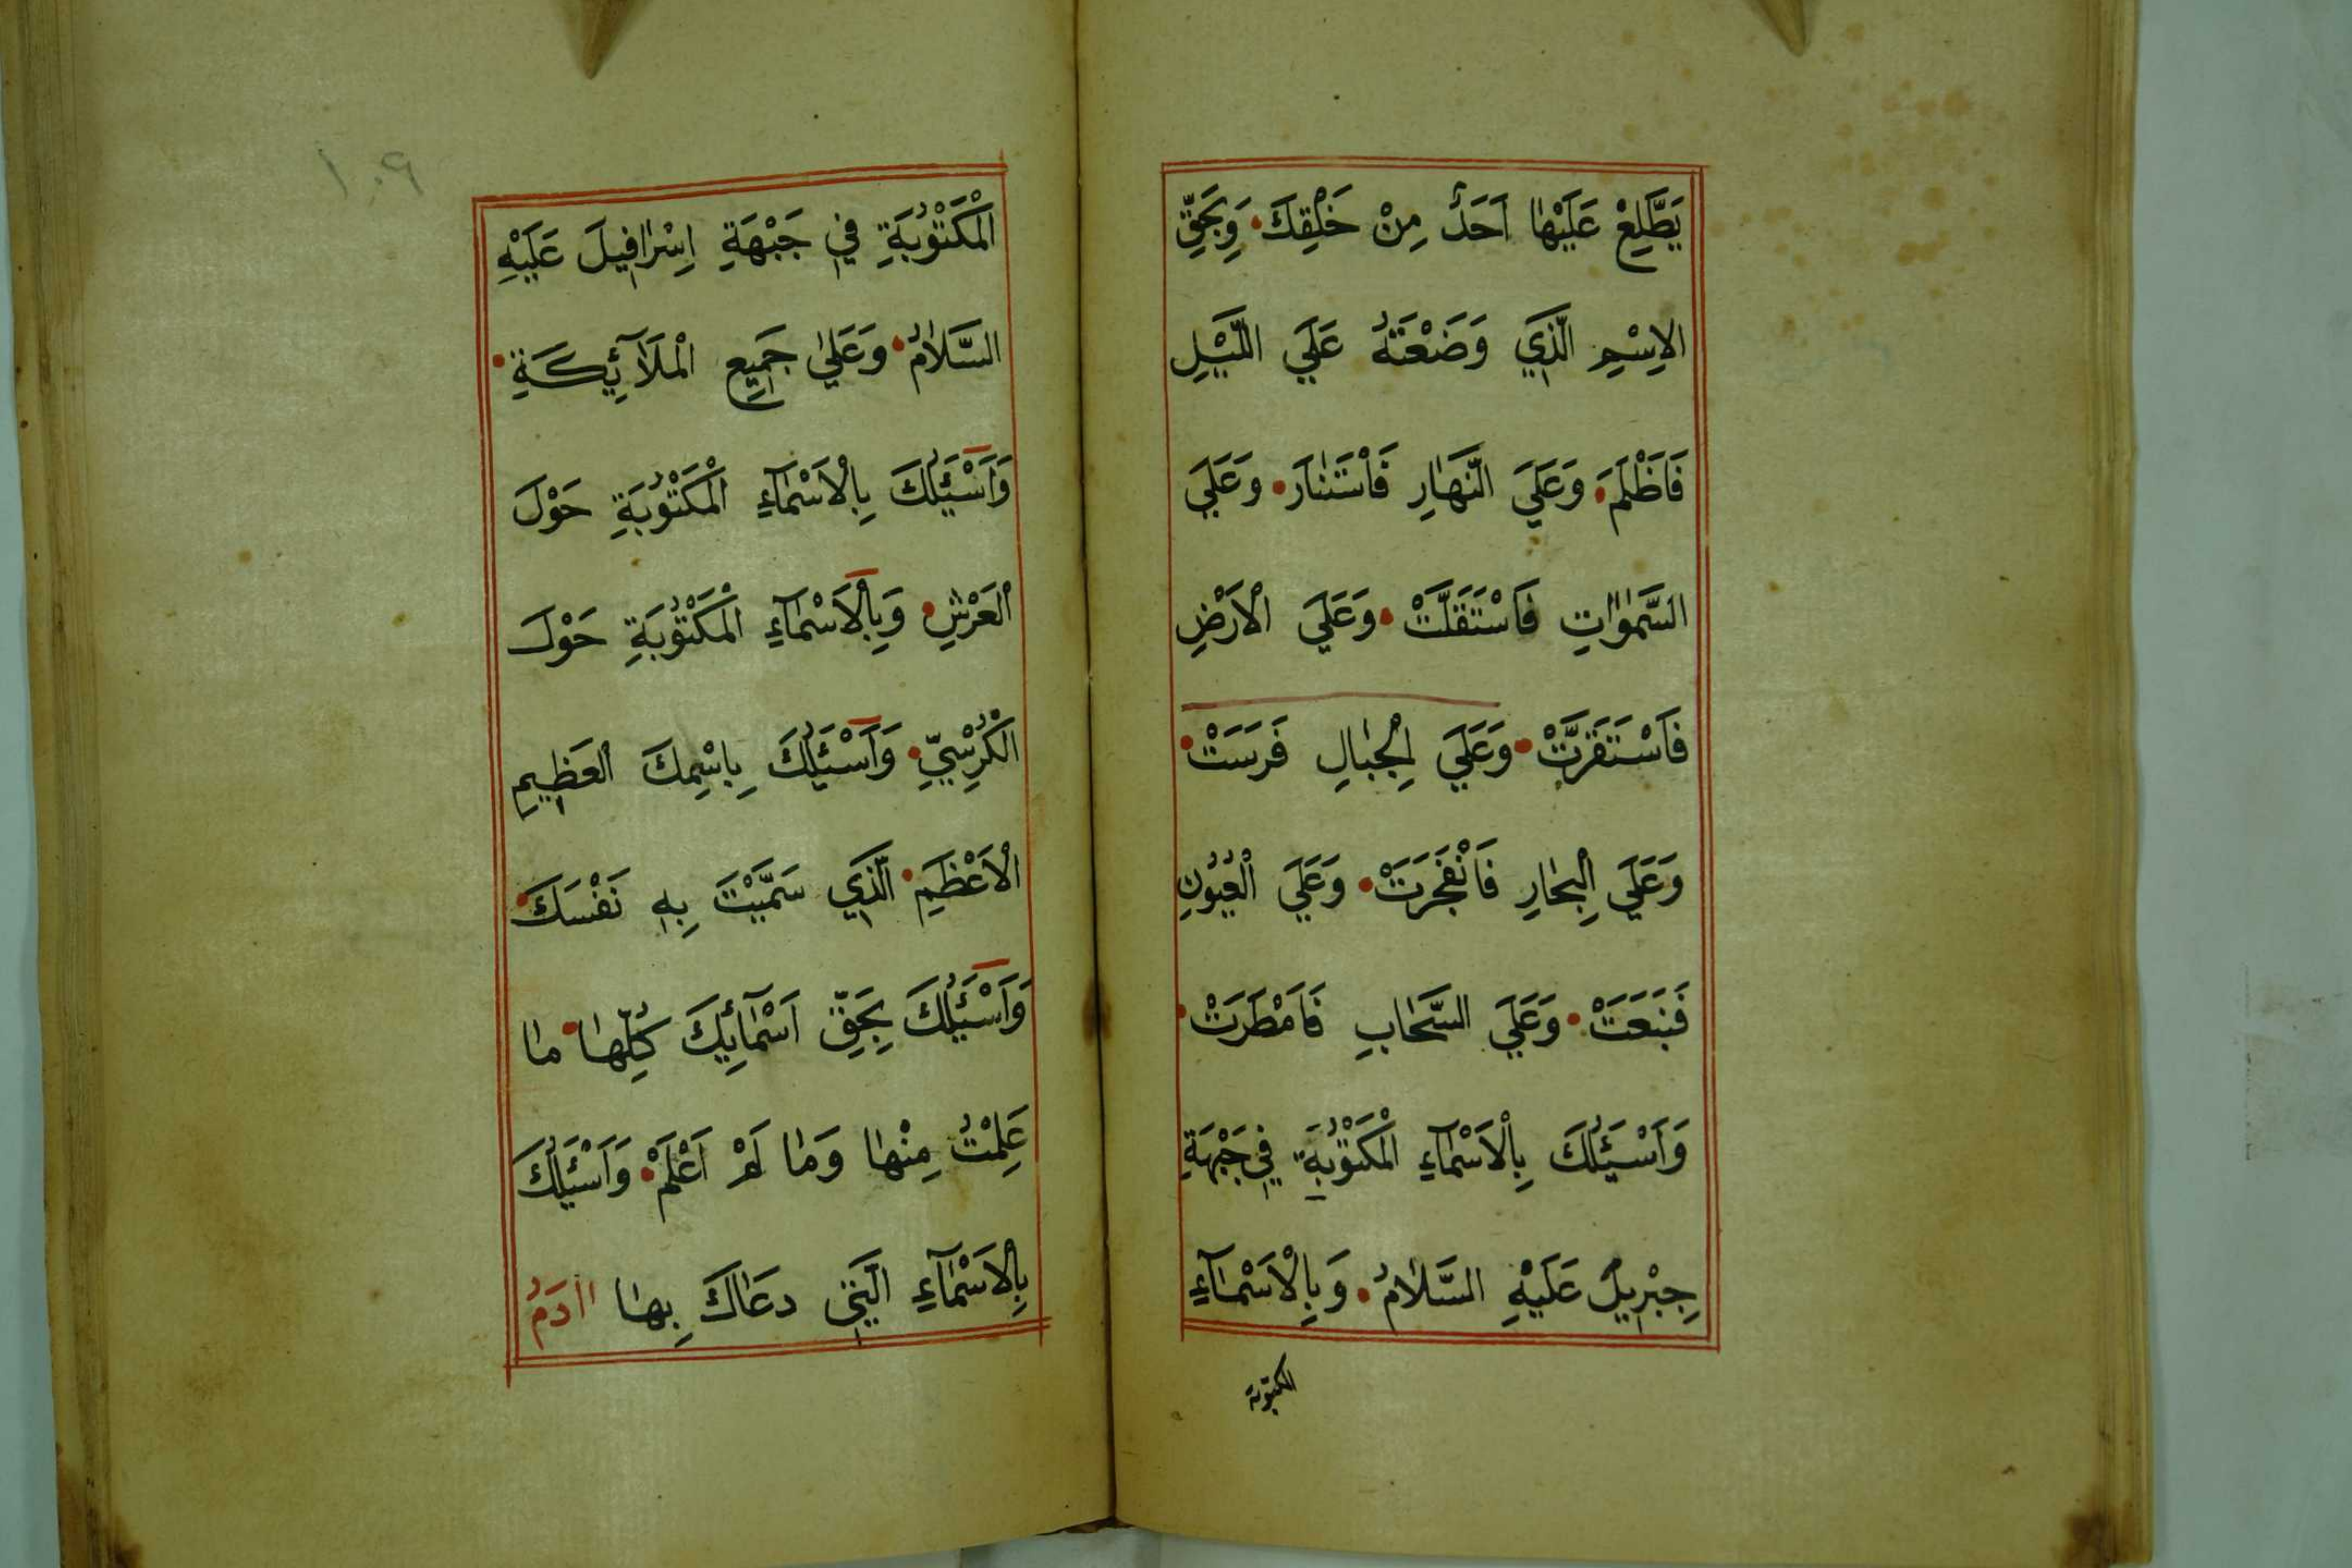 يَطَّلِعْ عَلَيْهٰا اَحَدٌ مِنْ خَلْقِكَ وَبِحَقِّ
الاِسْمِ الَّذِي وَضَعْتَهُ عَلَي اللَّيْلِ
فَاَظْلَمَ وَعَلَيَ النَّهٰارِ فَاسْتَنٰارَ وَعَلَي
السَّمٰوٰاتِ فَاسْتَقَلَّتْ وَعَلَي الْاَرْضِ
فَاسْتَقَرَّتْ وَعَلَي الْجِبٰالِ فَرَسَتْ
وَعَلَي الْبِحٰارِ فَانْفَجَرَتْ وَعَلَي الْعُيُوْنِ
فَنَبَعَتْ وَعَلَي السَّحٰابِ فَاَمْطَرَتْ
وَاَسْئَلُكَ بِالْاَسْمٰآءِ الْمَكْتُوْبَةِ فِي جَبْهَةِ
جِبْرِيلَ عَلَيْهِ السَّلٰامُ وَبِالْاَسْمٰآءِ
المكتوبة
١٠٩
الْمَكْتُوْبَةِ فِي جَبْهَةِ اِسْرٰافِيلَ عَلَيْهِ
السَّلٰامُ وَعَلٰي جَمِيعِ الْمَلٰآئِكَةِ
وَاَسْئَلُكَ بِالْاَسْمٰآءِ الْمَكْتُوْبَةِ حَوْلَ
الْعَرْشِ وَبِالْاَسْمٰآءِ الْمَكْتُوْبَةِ حَوْلَ
الْكُرْسِيِّ وَاَسْئَلُكَ بِاسْمِكَ الْعَظِيمِ
الْاَعْظَمِ الَّذِي سَمَّيْتَ بِهِ نَفْسَكَ
وَاَسْئَلُكَ بِحَقِّ اَسْمٰآئِكَ كُلِّهٰا مٰا
عَلِمْتُ مِنْهٰا وَمٰا لَمْ اَعْلَمْ وَاَسْئَلُكَ
بِالْاَسْمٰآءِ الَّتِي دَعٰاكَ بِهٰا اٰدَمُ